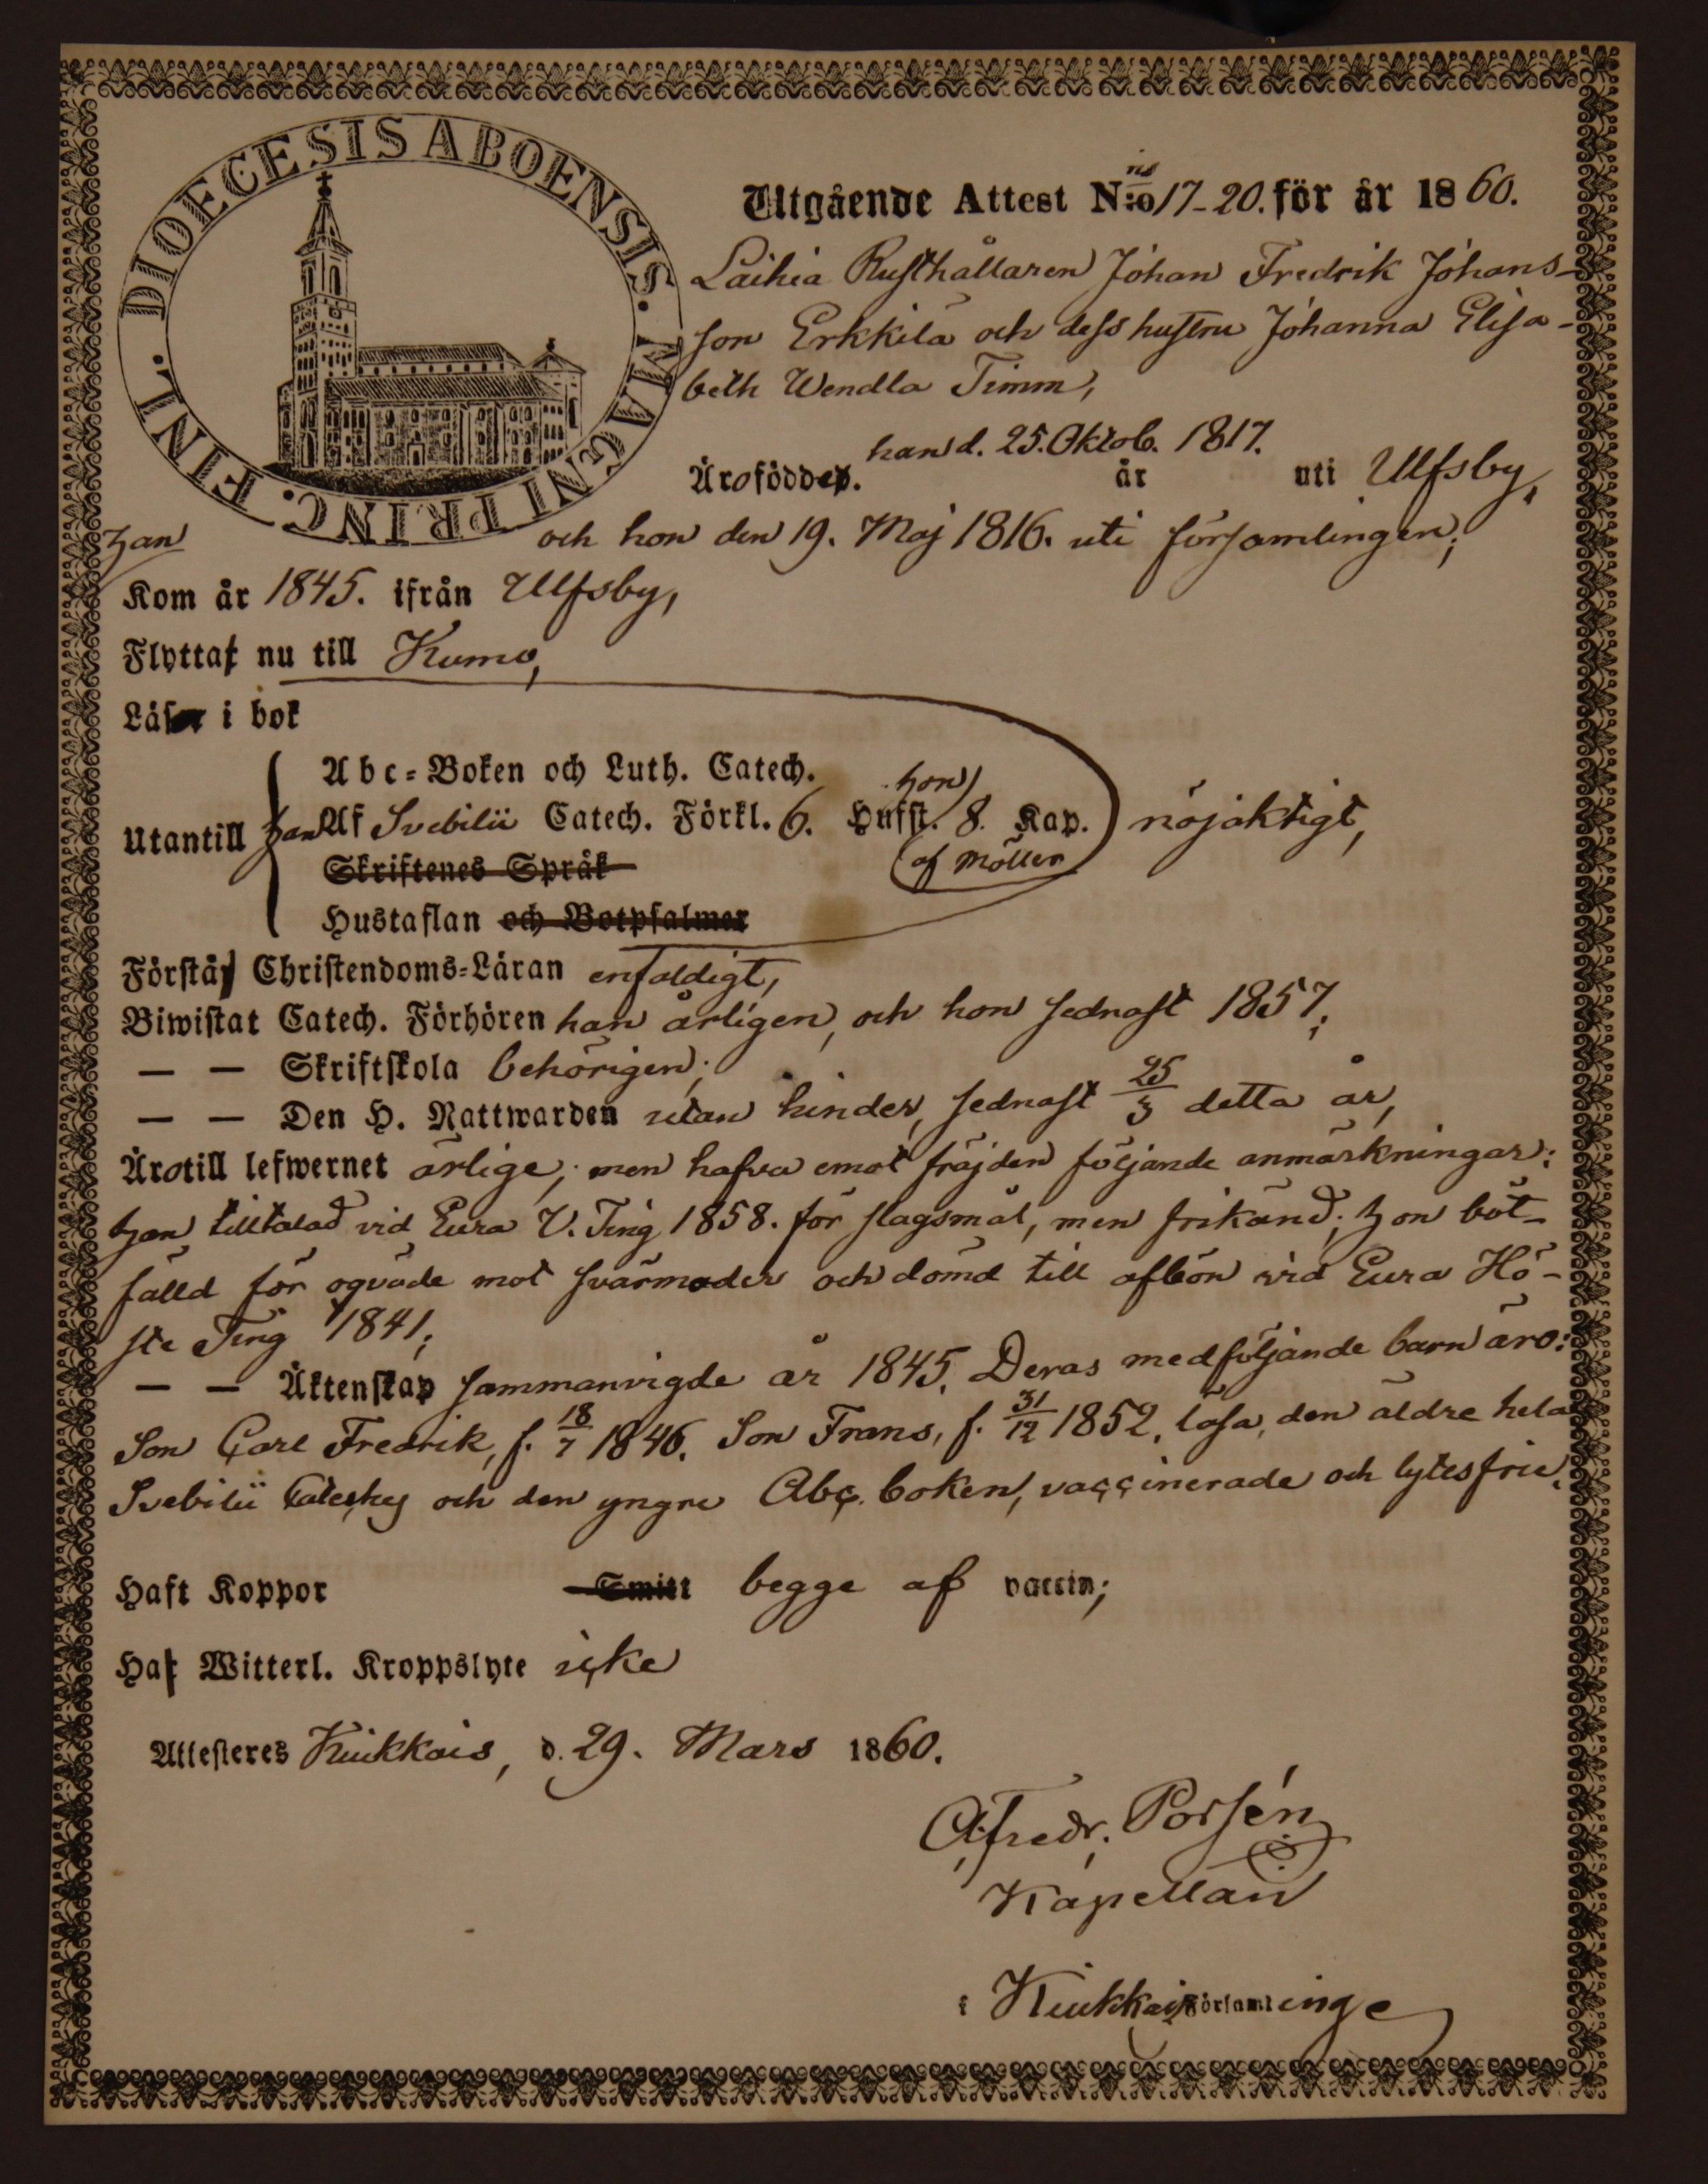 DIOECESIS ABOENSIS. MAGNI PRINC. FINL.
Utgående Attest N:o 17-20. för år 1860.
Laihia Rusthållaren Johan Fredrik Johans-
son Erkkilä och dess hustru Johanna Elisa-
beth Wendla Timm,
han d. 25. Oktob. 1817.
Äro födde. år uti Ulfsby,
och hon den 19. Maj 1816. uti församlingen;
Han
Kom år 1845. ifrån Ulfsby,
Flytta nu till Kumo,
Läsa i bok
Abc-Boken och Luth. Catech.
hon
Utantill han Af Svebilii Catech. Förkl. 6. Hufst. 8. Kap. nöjaktigt,
af Möller
Skriftenes Språk
Hustaflan och Botpsalmer
Förstå Christendoms-Läran enfaldigt,
Biwistat Catech. Förhören han årligen, och hon sednast 1857;
— — Skriftskola behörigen;
— — Den H. Nattwarden utan hinder, sednast 25/3 detta år,
Äro till lefwernet ärlige; men hafva emot fräjden följande anmärkningar:
han tilltalad vid Eura V. Ting 1858. för slagsmål, men frikänd; hon böt-
fälld för oqväde mot svärmoder och dömd till afbön vid Eura Hö-
ste Ting 1841;
— — Äktenskap sammanvigde år 1845. Deras medföljande barn äro:
Son Carl Fredrik, f. 18/7 1846. Son Frans, f. 31/12 1852. läsa, den äldre hela
Svebilii Cateches och den yngre Abc. boken, vaccinerade och lytesfrie.
Haft Koppor Smitt begge af vaccin;
Ha Witterl. Kroppslyte icke
Attesteres Kiukkais, d. 29. Mars 1860.
A. Fredr. Porsén
Kapellan
i Kiukkais Församlinge